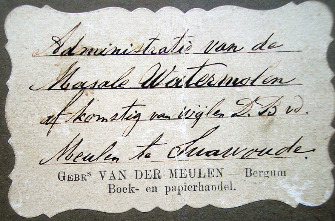 Administratie van de
Masale Watermolen
afkomstig van wijlen D. B vd.
Meulen te Suawoude.
GEBRS VAN DER MEULEN — Bergum
Boek- en papierhandel.